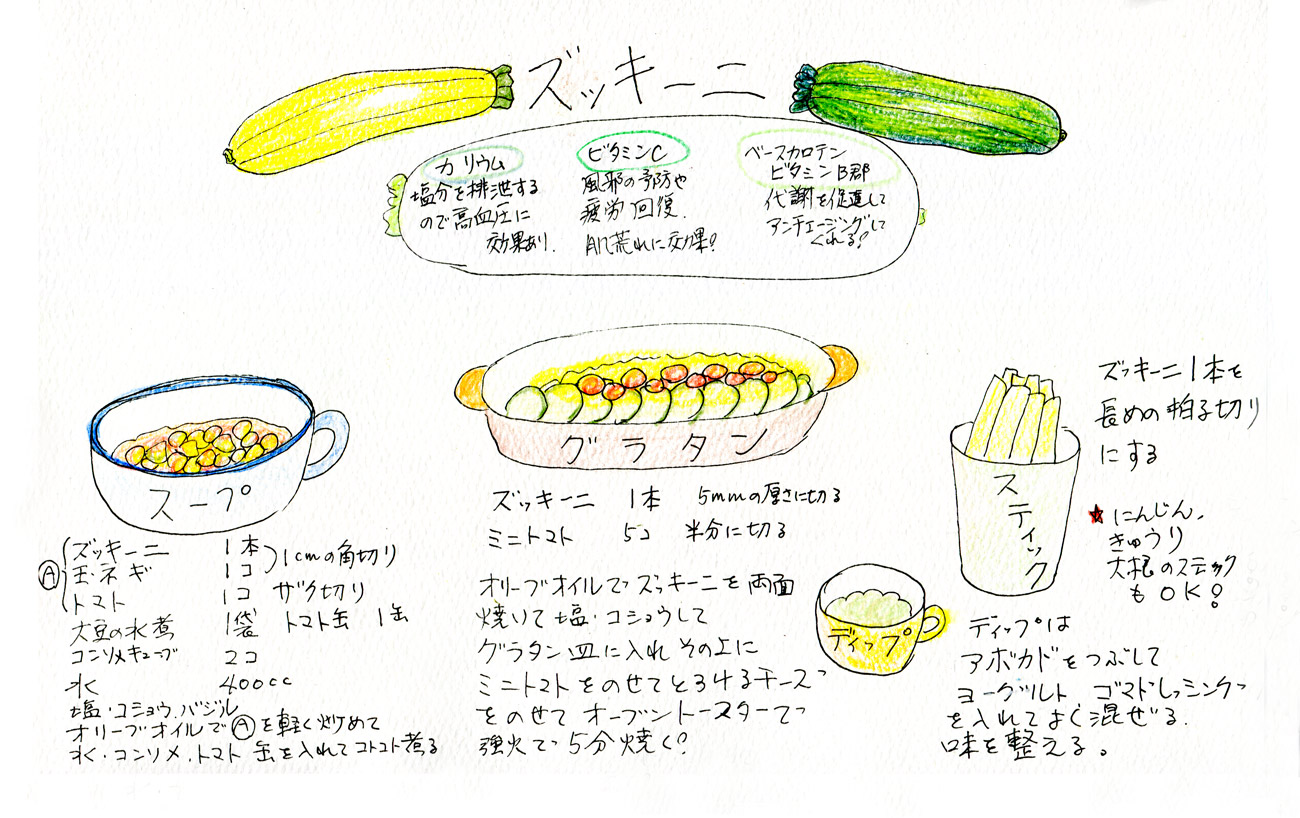 ズッキーニ
カリウム
塩分を排泄する
ので高血圧に
効果あり.
ビタミンC
風邪の予防や
疲労回復.
肌荒れに効果!
ベースカロテン
ビタミンB郡
代謝を促進して
アンチェージングして
くれる!
スープ
Ⓐ
ズッキーニ 1本
玉ネギ 1コ
1cmの角切り
トマト 1コ ザク切り
大豆の水煮 1袋 トマト缶 1缶
コンソメキューブ 2コ
水 400cc
塩・コショウ.バジル
オリーブオイルでⒶを軽く炒めて
水・コンソメ.トマト缶を入れてコトコト煮る
グラタン
ズッキーニ 1本 5mmの厚さに切る
ミニトマト 5コ 半分に切る
オリーブオイルでズッキーニを両面
焼いて塩・コショウして
グラタン皿に入れその上に
ミニトマトをのせてとろけるチーズ
をのせてオーブントースターで
強火で5分焼く!
スティック
ズッキーニ1本を
長めの拍子切り
にする
★にんじん.
きゅうり
大根のスティック
もOK!
ディップ
ディップは
アボカドをつぶして
ヨーグルト ゴマドレッシング
を入れてよく混ぜる.
味を整える。